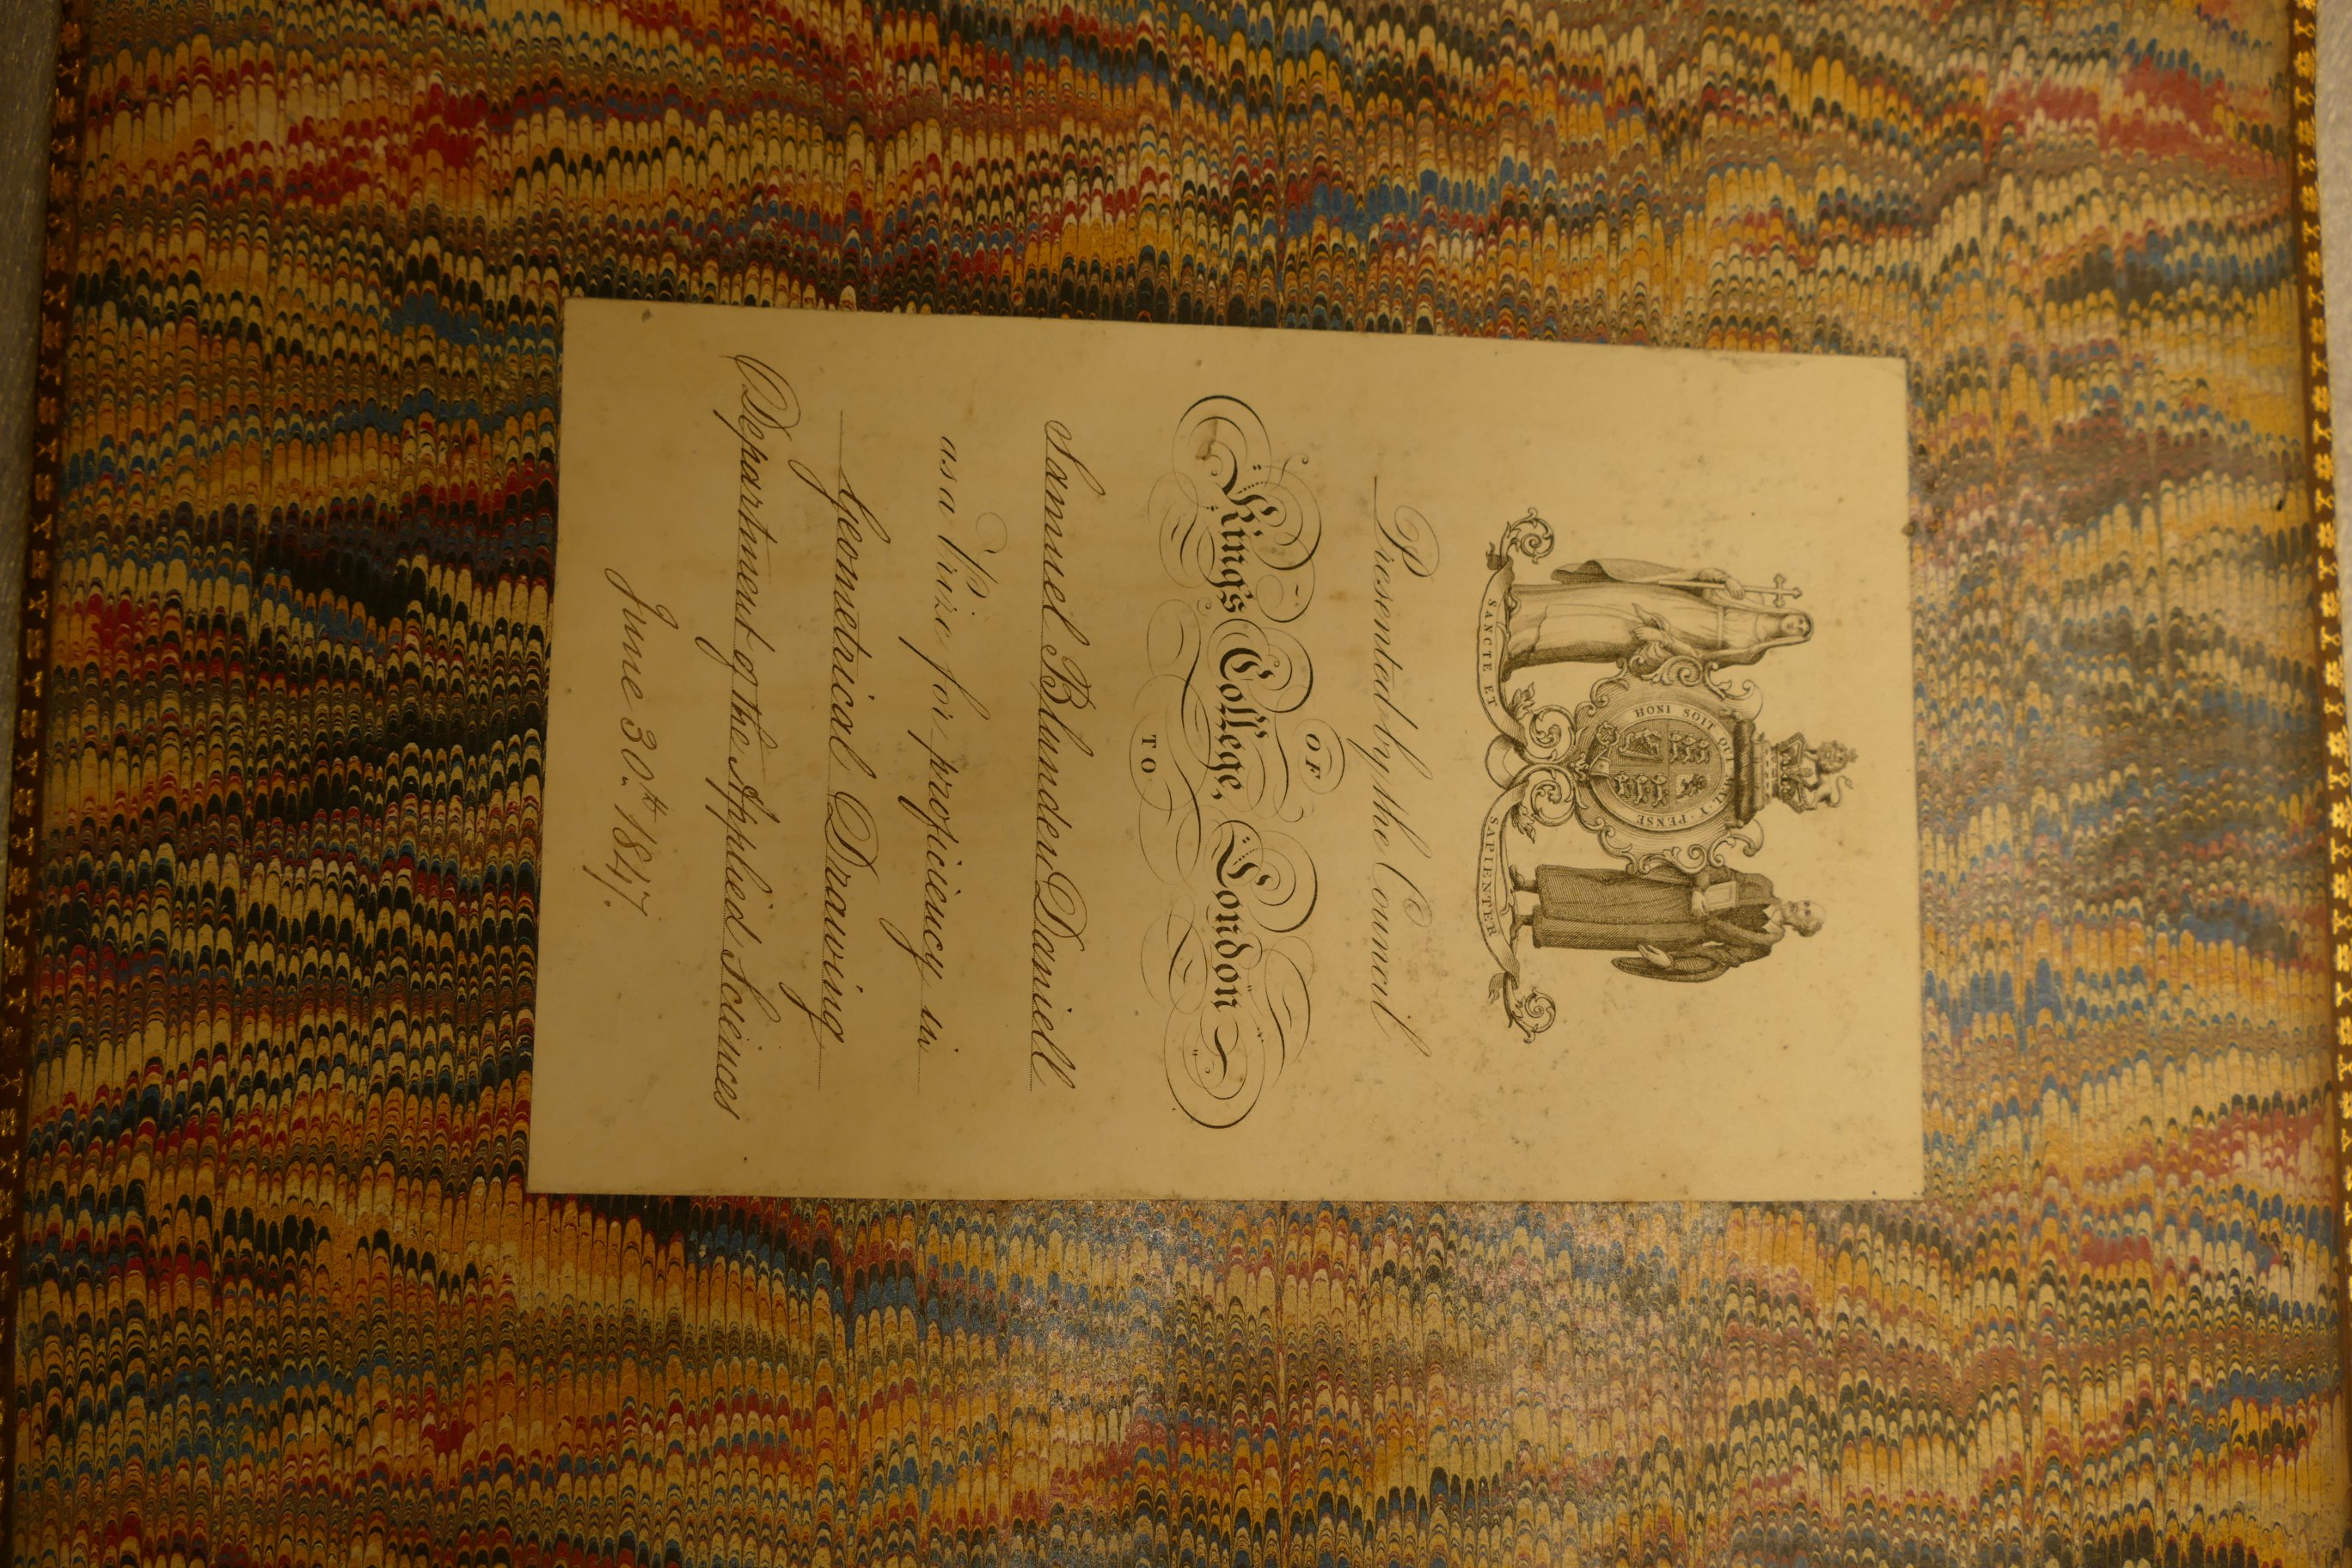 HONI SOIT QUI MAL Y PENSE
SANCTE ET SAPIENTER
Presented by the Council
OF
King's College, London
TO
Samuel Blunden Daniell
as a Prize for proficiency in
Geometrical Drawing
Department of the Applied Sciences
June 30th 1847.